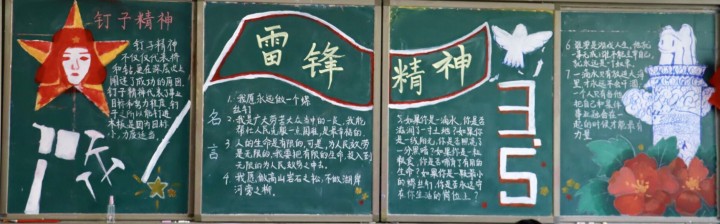 钉子精神
钉子精神
不仅仅代表挤
和钻是在深层次上
阐述了成功的原因
钉子精神代表了事业
目标和努力程度,钉
子之所以能钉进
木板是因为目标
小,力度适当。
雷锋精神
名言
1.我愿永远做一个螺
丝钉
2.我是广大劳苦大众当中的一员,我能
帮仁人民克服一点困难,是最幸福的。
3.人的生命是有限的,可是,为人民服务
是无限的,我要把有限的生命,投入到
无限的为人民服务之中去。
4.我愿做高山岩石之松,不做湖岸
河旁之柳。
5.如果你是一滴水,你是否
滋润了一寸土地?如果你
是一线阳光,你是否照亮了
一分黑暗?如果你是一粒
粮食,你是否哺育了有用的
生命?如果你是一颗最小
的螺丝钉,你是否永远守
在你生活的岗位上?
3.5
6.
7.一滴水只有放进大海
里才永远不会干涸
一个人只有当他
把自己和集体
事业融合在一
起的时候才能最有
力量